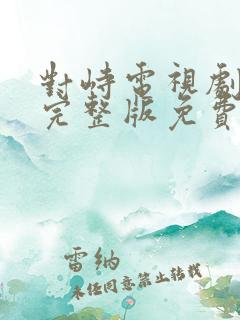 對峙電視劇
完整版免費
雷纳
未经同意禁止转载